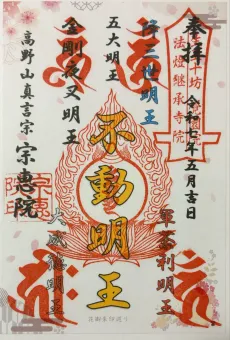 奉拝
令和七年五月吉日
法燈継承寺院
降三世明王
五大明王
金剛夜叉明王
不動明王
軍荼利明王
大威徳明王
高野山真言宗
宗惠院